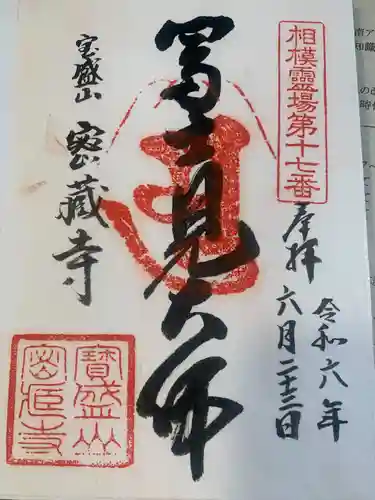 相模靈場第十七番
奉拝
令和六年
六月二十三日
富士見大師
宝盛山
密蔵寺
寳盛山
密蔵寺